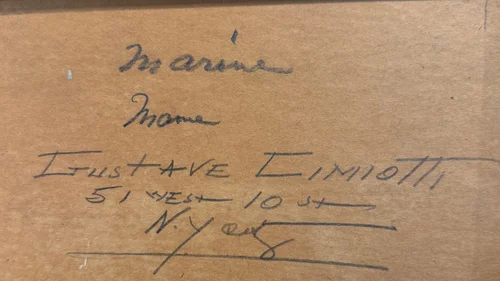 Marine
Maine
GUSTAVE CIMIOTTI
51 WEST 10 St
N.Y